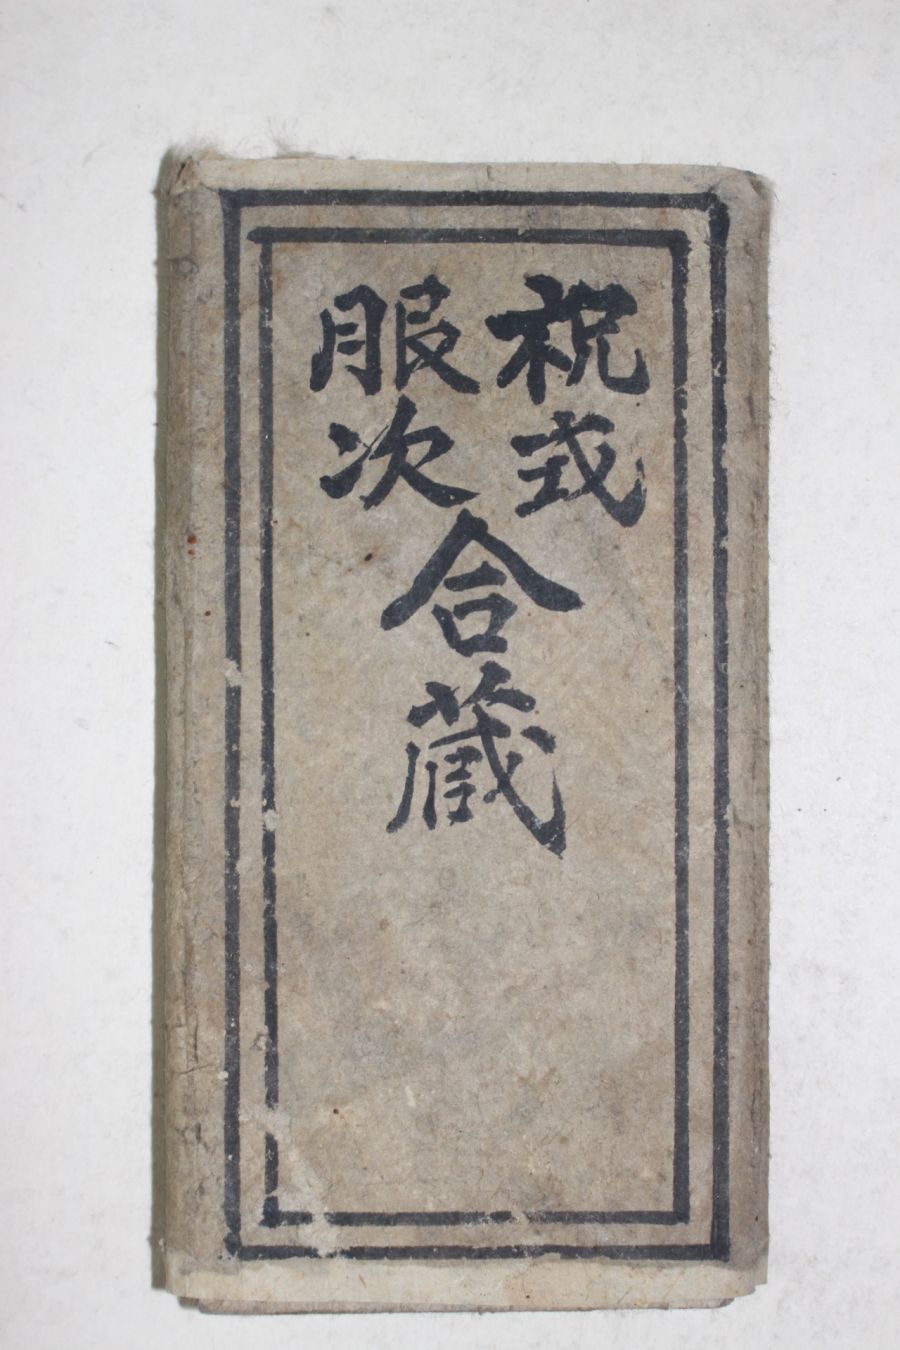 祝式
服次
合蔵